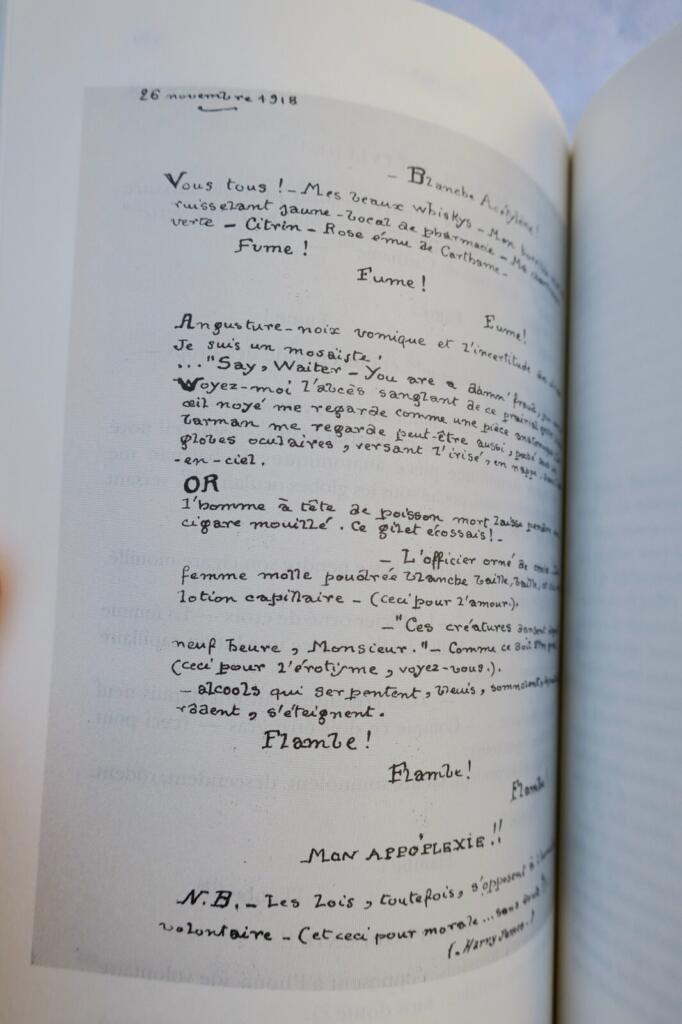 26 novembre 1918
– Blanche Acétylène!
Vous tous ! – Mes beaux whiskys – Mon
ruisselant jaune – bocal de pharmacie – Ma
verte – Citrin – Rose ému de Carthame –
Fume !
Fume !
Fume!
Angusture – noix vomique et l'incertitude
Je suis un mosaïste.
... "Say, Waiter – You are a damn' fraud,
Voyez-moi l'abcès sanglant de ce prairial
œil noyé me regarde comme une pièce
barman me regarde peut-être aussi,
globes oculaires, versant l'irisé, en nappe,
-en-ciel.
OR
l'homme à tête de poisson mort laisse
cigare mouillé. Ce gilet écossais! –
– L'officier orné de
femme molle poudrée blanche baille, baille,
lotion capillaire – (ceci pour l'amour.).
– "Ces créatures dansent
neuf heure, Monsieur." – Comme ce
(ceci pour l'érotisme, voyez-vous.).
– alcools qui serpentent, bleuis, somnolent,
rôdent, s'éteignent.
Flambe !
Flambe!
Flambe
MON APPOPLEXIE !!
N.B. – Les lois, toutefois, s'opposent à
volontaire – (et ceci pour morale ... sans
(. Harry James .)